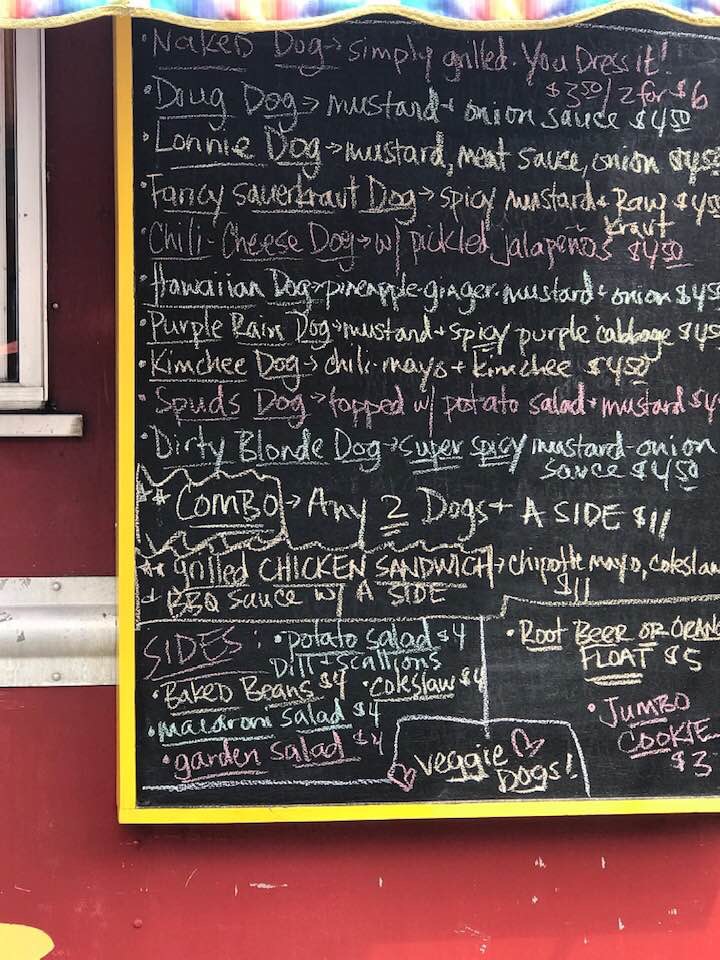 · Naked Dog → simply grilled. You Dress it!
$3.50 / 2 for $6
· Doug Dog → mustard + onion sauce $4.50
· Lonnie Dog → mustard, meat sauce, onion $4.50
· Fancy Sauerkraut Dog → spicy mustard + Raw $4.50
kraut
· Chili-Cheese Dog → w/ pickled jalapeños $4.50
· Hawaiian Dog → pineapple-ginger-mustard + onion $4.5
· Purple Rain Dog → mustard + spicy purple cabbage $4.5
· Kimchee Dog → chili-mayo + kimchee $4.50
· Spuds Dog → topped w/ potato salad + mustard $4
· Dirty Blonde Dog → super spicy mustard-onion
sauce $4.50
** COMBO → Any 2 Dogs + A SIDE $11
** grilled CHICKEN SANDWICH → chipotle mayo, coleslaw
$11
+ BBQ sauce w/ A SIDE
SIDES: · potato salad $4
Dill + scallions
· Baked Beans $4 · coleslaw $4
· macaroni salad $4
· garden salad $4
· ROOT BEER OR ORAN
FLOAT $5
· JUMBO
COOKIE
$3
veggie
DOGS!